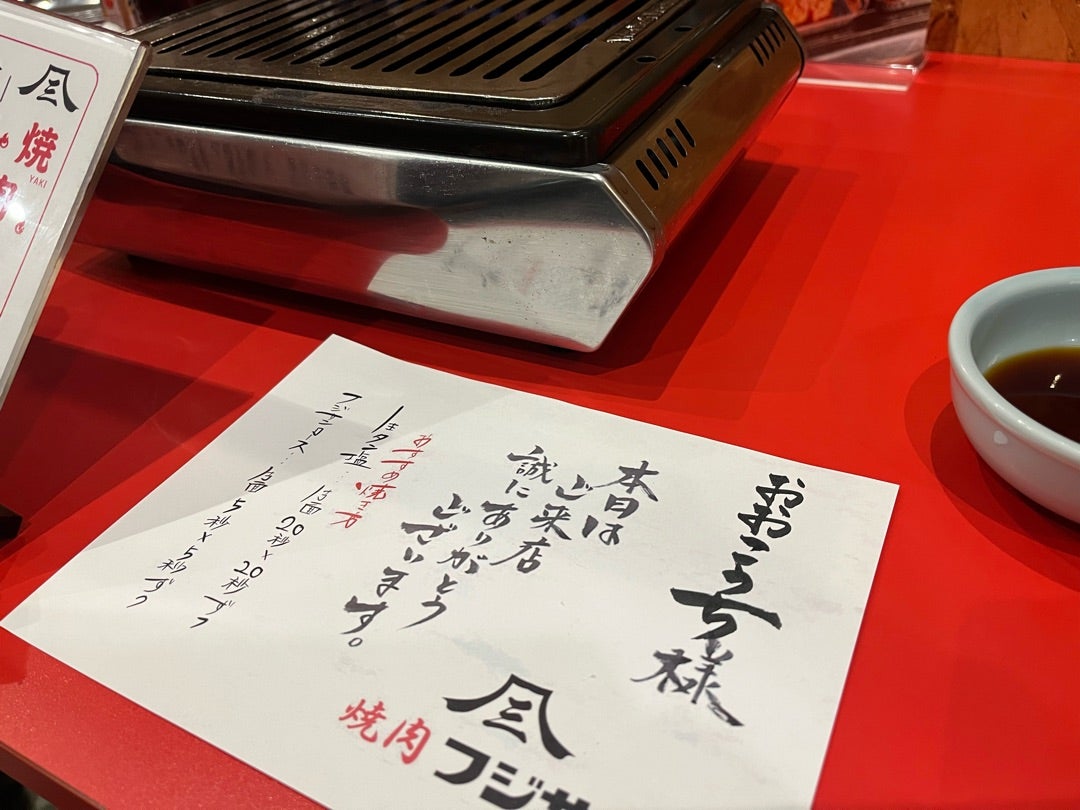 おおこうち様
本日は
ご来店
誠にありがとう
ございます。
おすすめ焼き方
生タン塩… 片面20秒×20秒ずつ
フジサンロース… 片面5秒×5秒ずつ
焼肉
フジサ
焼
YAKI